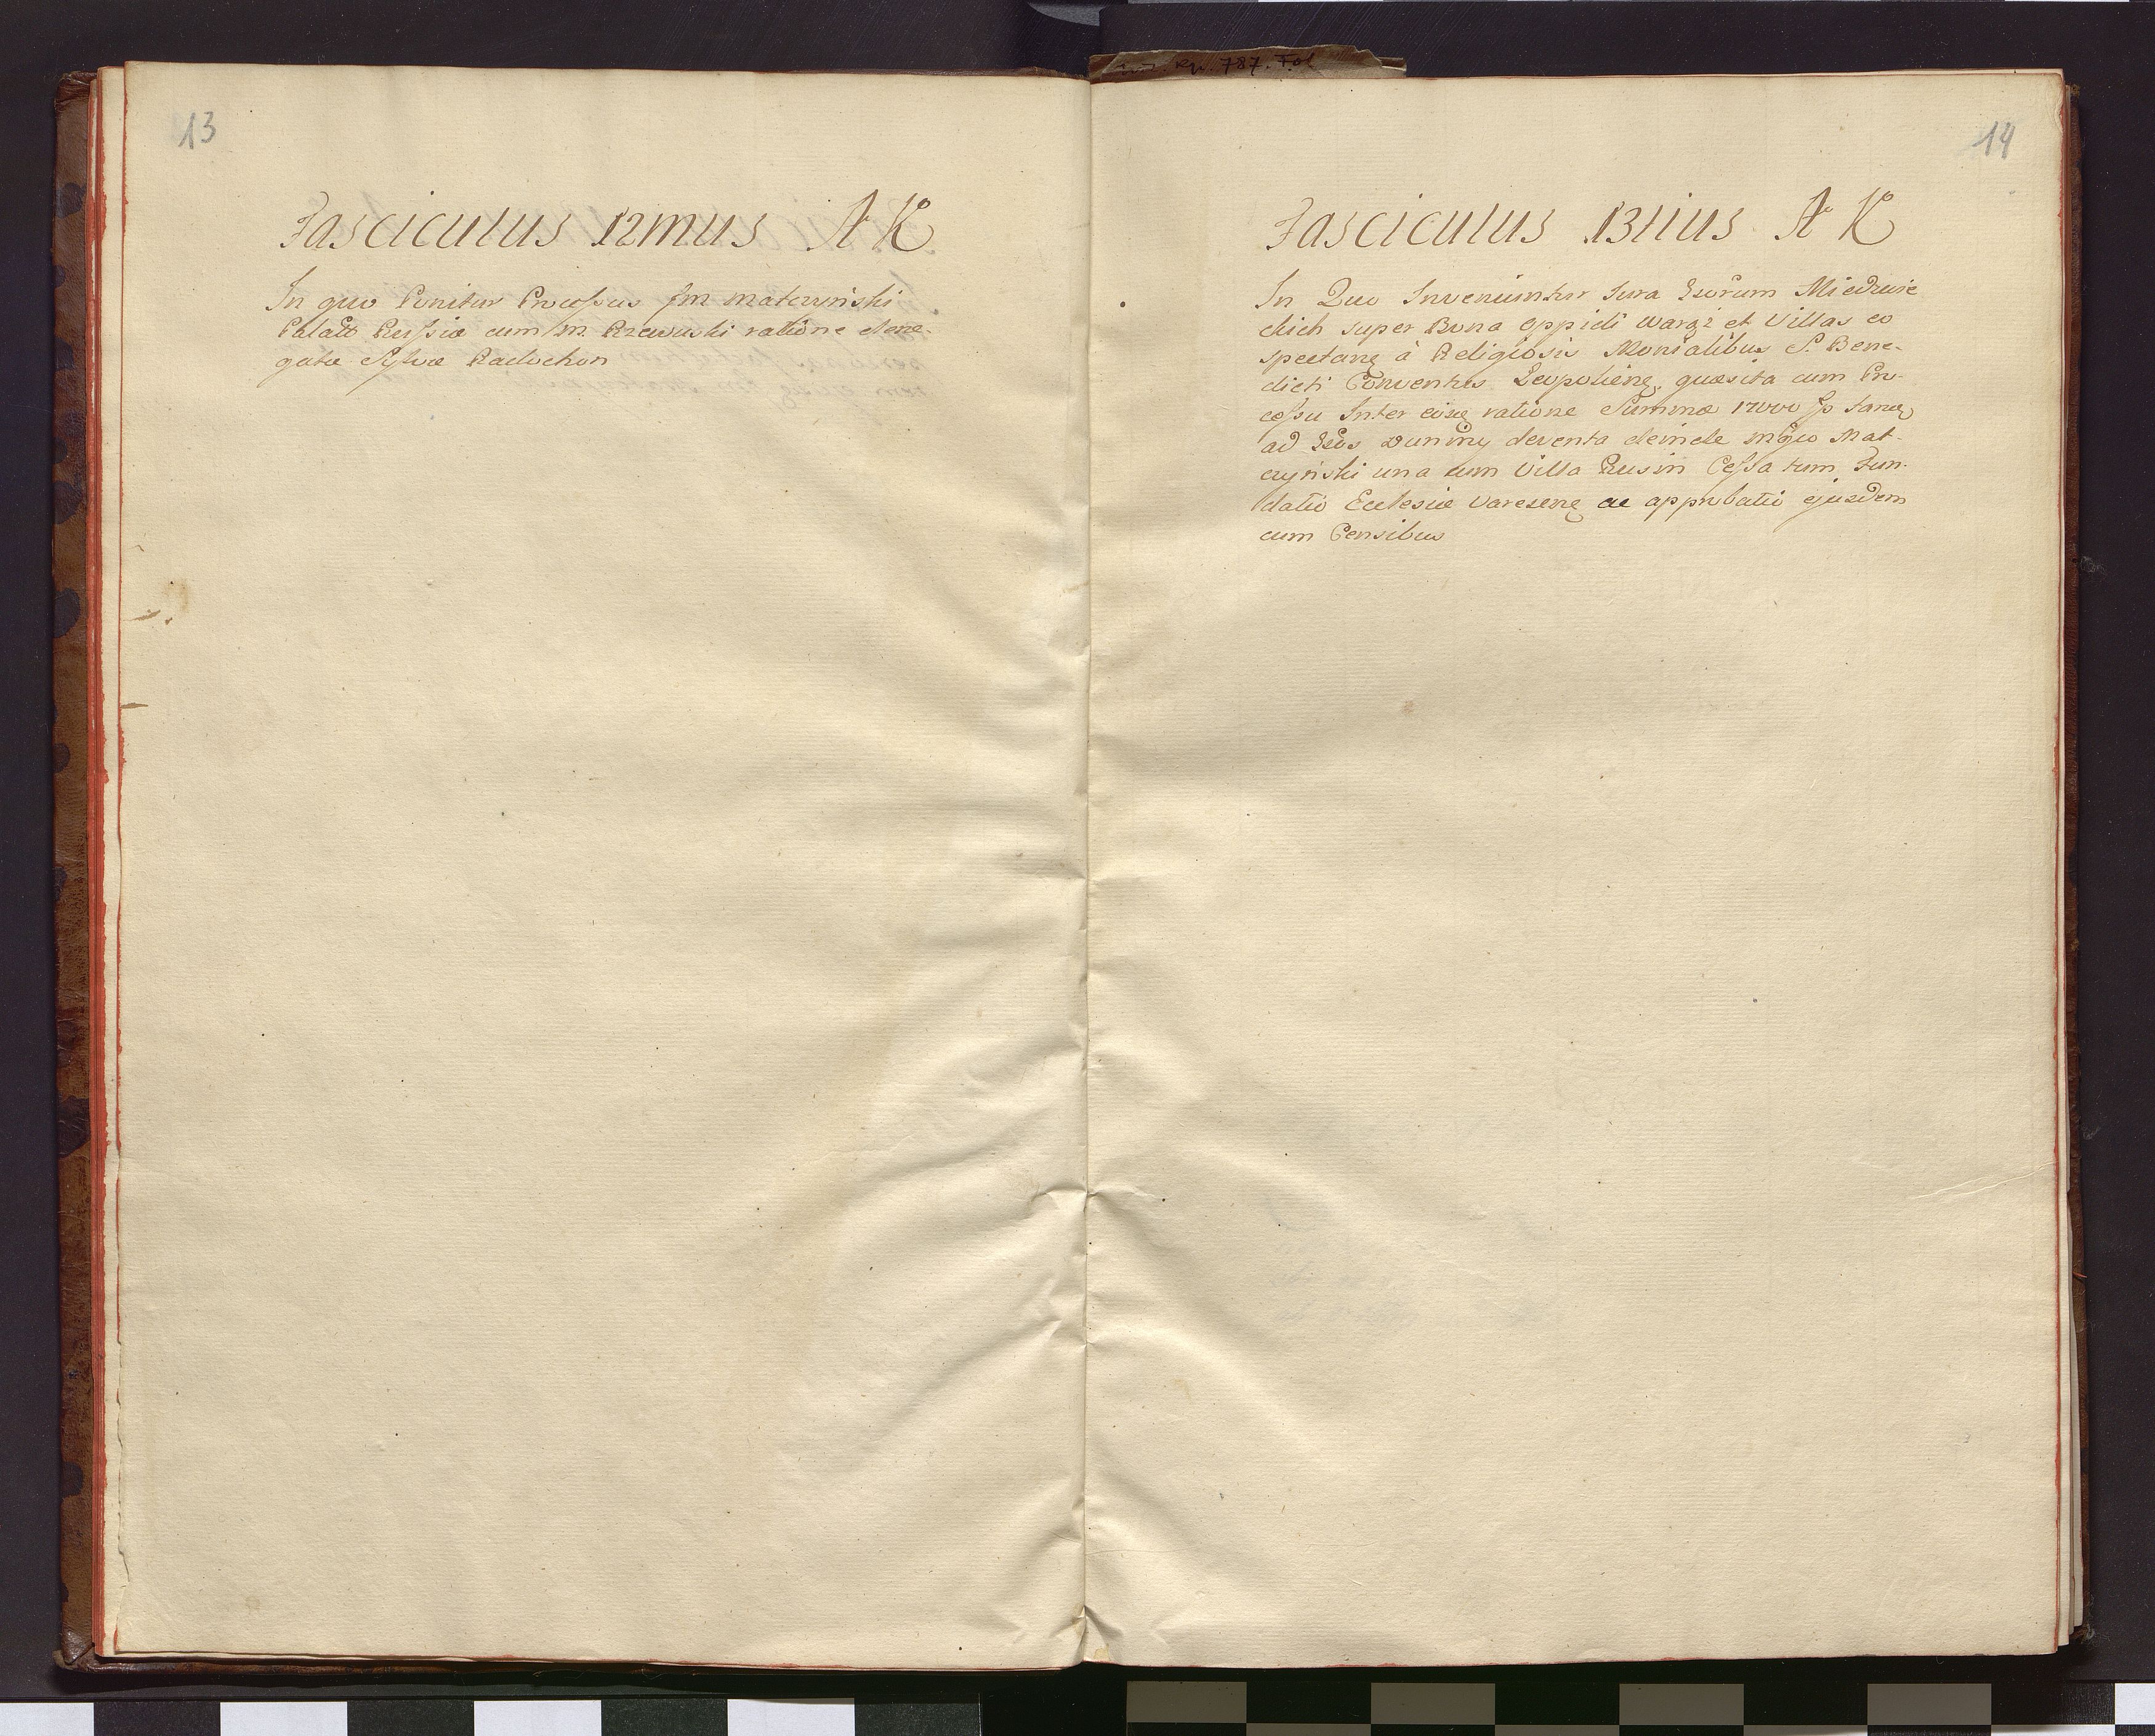 13
Fasciculus 12mus A K
In quo Ponitur Processus Jm Matczyński
Palatt Russiæ cum m Rzewuski ratione dene-
gatæ Sylvæ Radochon
rkp. 787. Fol
14
Fasciculus 13tius A K
In Quo Inveniuntur Jura Mieduie
chich super Bona Oppidi Waręż et Villas eo
spectanę à Religiosis Monialibus S. Bene-
dicti Conventus Leopolienę quæsita cum Pro-
cessu Inter eosę ratione Summæ 17000 tanę
ad deventa deinde mgco Mat-
czyński una cum Villa Rusin Cessa tum Fun-
datio Ecclesiæ Varesenę ac approbatio ejusdem
cum Censibus